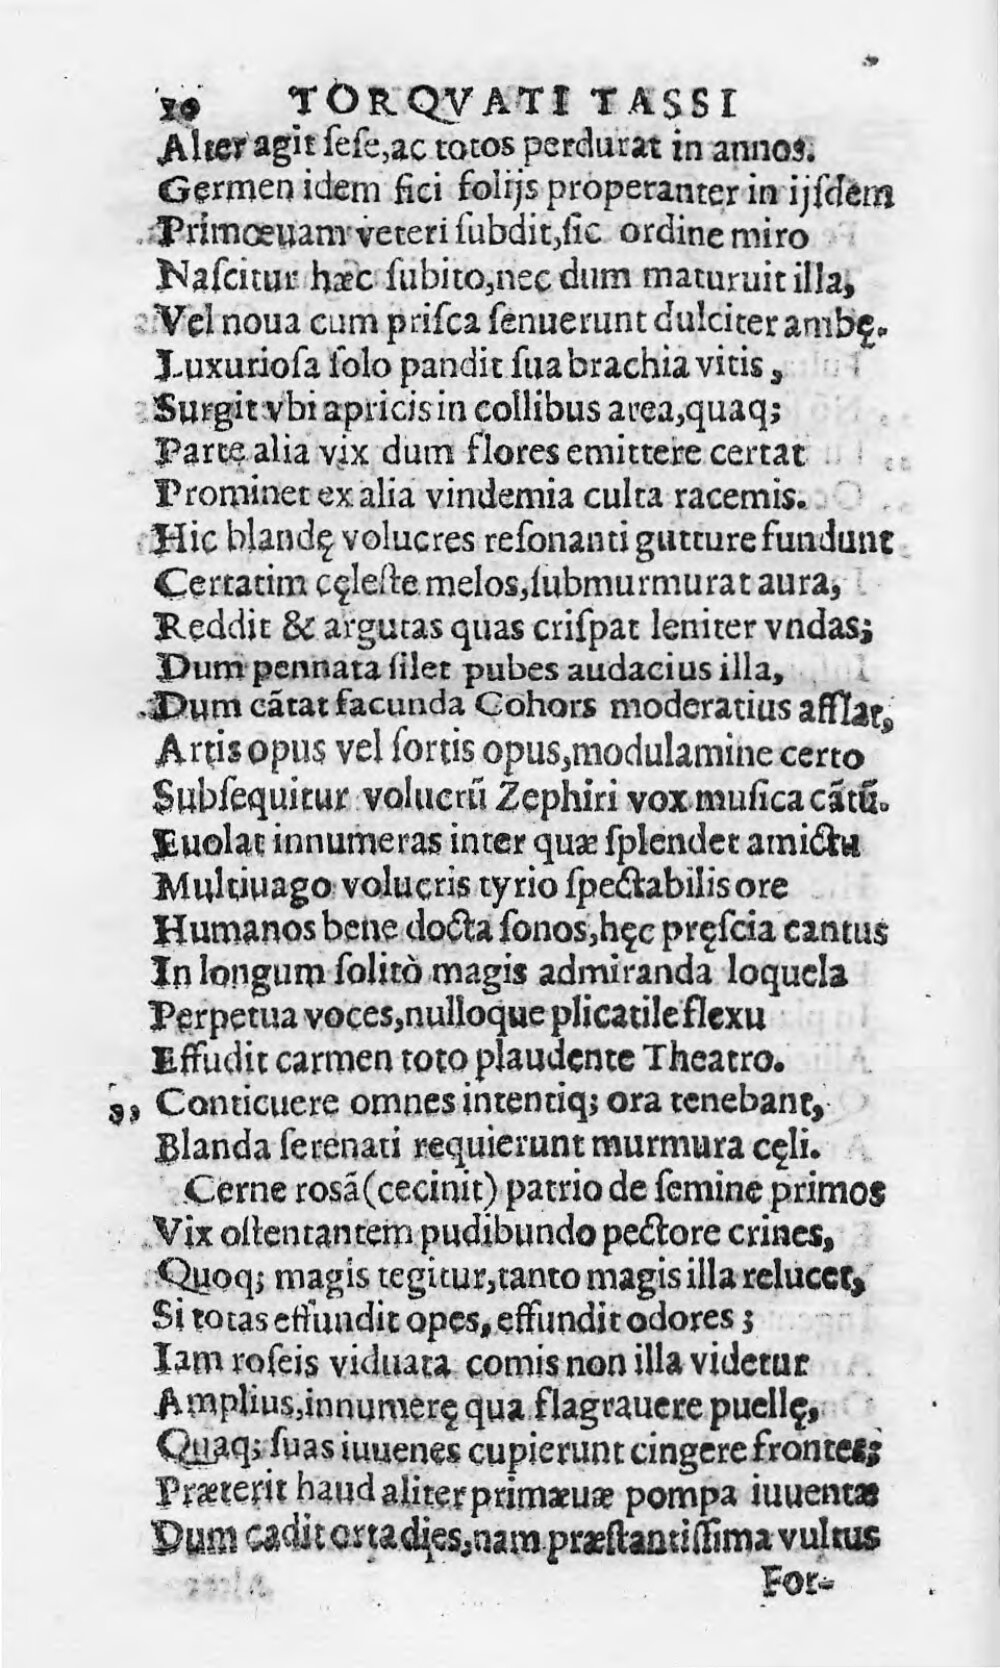 10 TORQVATI TASSI
Alter agit ſeſe,ac totos perdurat in annos.
Germen idem fici folijs properanter in ijſdem
Primœuam veteri ſubdit,ſic ordine miro
Naſcitur hæc ſubito,nec dum maturuit illa,
Vel noua cum priſca ſenuerunt dulciter ambę.
Luxurioſa ſolo pandit ſua brachia vitis,
Surgit vbi apricis in collibus area,quaq;
Parte alia vix dum flores emittere certat
Prominet ex alia vindemia culta racemis.
Hic blandę volucres reſonanti gutture fundunt
Certatim cęleſte melos,ſubmurmurat aura,
Reddit & argutas quas criſpat leniter vndas;
Dum pennata ſilet pubes audacius illa,
Dum cãtat facunda Cohors moderatius afflat,
Artis opus vel ſortis opus,modulamine certo
Subſequitur volucrũ Zephiri vox muſica cãtũ.
Euolat innumeras inter quæ ſplendet amictu
Multiuago volucris tyrio ſpectabilis ore
Humanos bene docta ſonos,hęc pręſcia cantus
In longum ſolitò magis admiranda loquela
Perpetua voces,nulloque plicatile flexu
Effudit carmen toto plaudente Theatro.
Conticuere omnes intentiq; ora tenebant,
Blanda ſerenati requierunt murmura cęli.
Cerne rosã(cecinit)patrio de ſemine primos
Vix oſtentantem pudibundo pectore crines,
Quoq; magis tegitur,tanto magis illa relucet,
Si totas effundit opes, effundit odores;
Iam roſeis viduata comis non illa videtur
Amplius,innumerę qua flagrauere puellę,
Quaq; ſuas iuuenes cupierunt cingere frontes;
Præterit haud aliter primæuæ pompa iuuentæ
Dum cadit orta dięs,nam præſtantiſſima vultus
For-